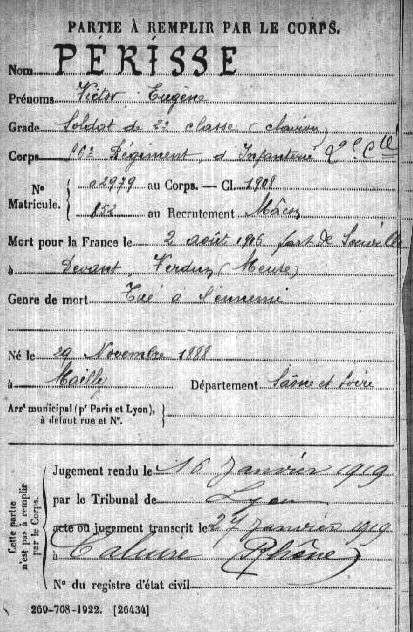 PARTIE À REMPLIR PAR LE CORPS.
Nom PÉRISSE
Prénoms Victor Eugène
Grade Soldat de 2e classe (clairon)
Corps Régiment d'Infanterie 2e Cie
No Matricule. { 02979 au Corps. — Cl. 1908
852 au Recrutement Mâcon
Mort pour la France le 2 août 1916 fort de Souville
à Devant Verdun (Meuse)
Genre de mort Tué à l'ennemi
Né le 29 Novembre 1888
à Mailly Département Saône et Loire
Arrt municipal (pr Paris et Lyon),
à défaut rue et No.
Cette partie n'est pas à remplir par le Corps.
Jugement rendu le 16 Janvier 1919
par le Tribunal de Lyon
acte ou jugement transcrit le 27 Janvier 1919
à Caluire (Rhône)
No du registre d'état civil
269-708-1922. [26434]